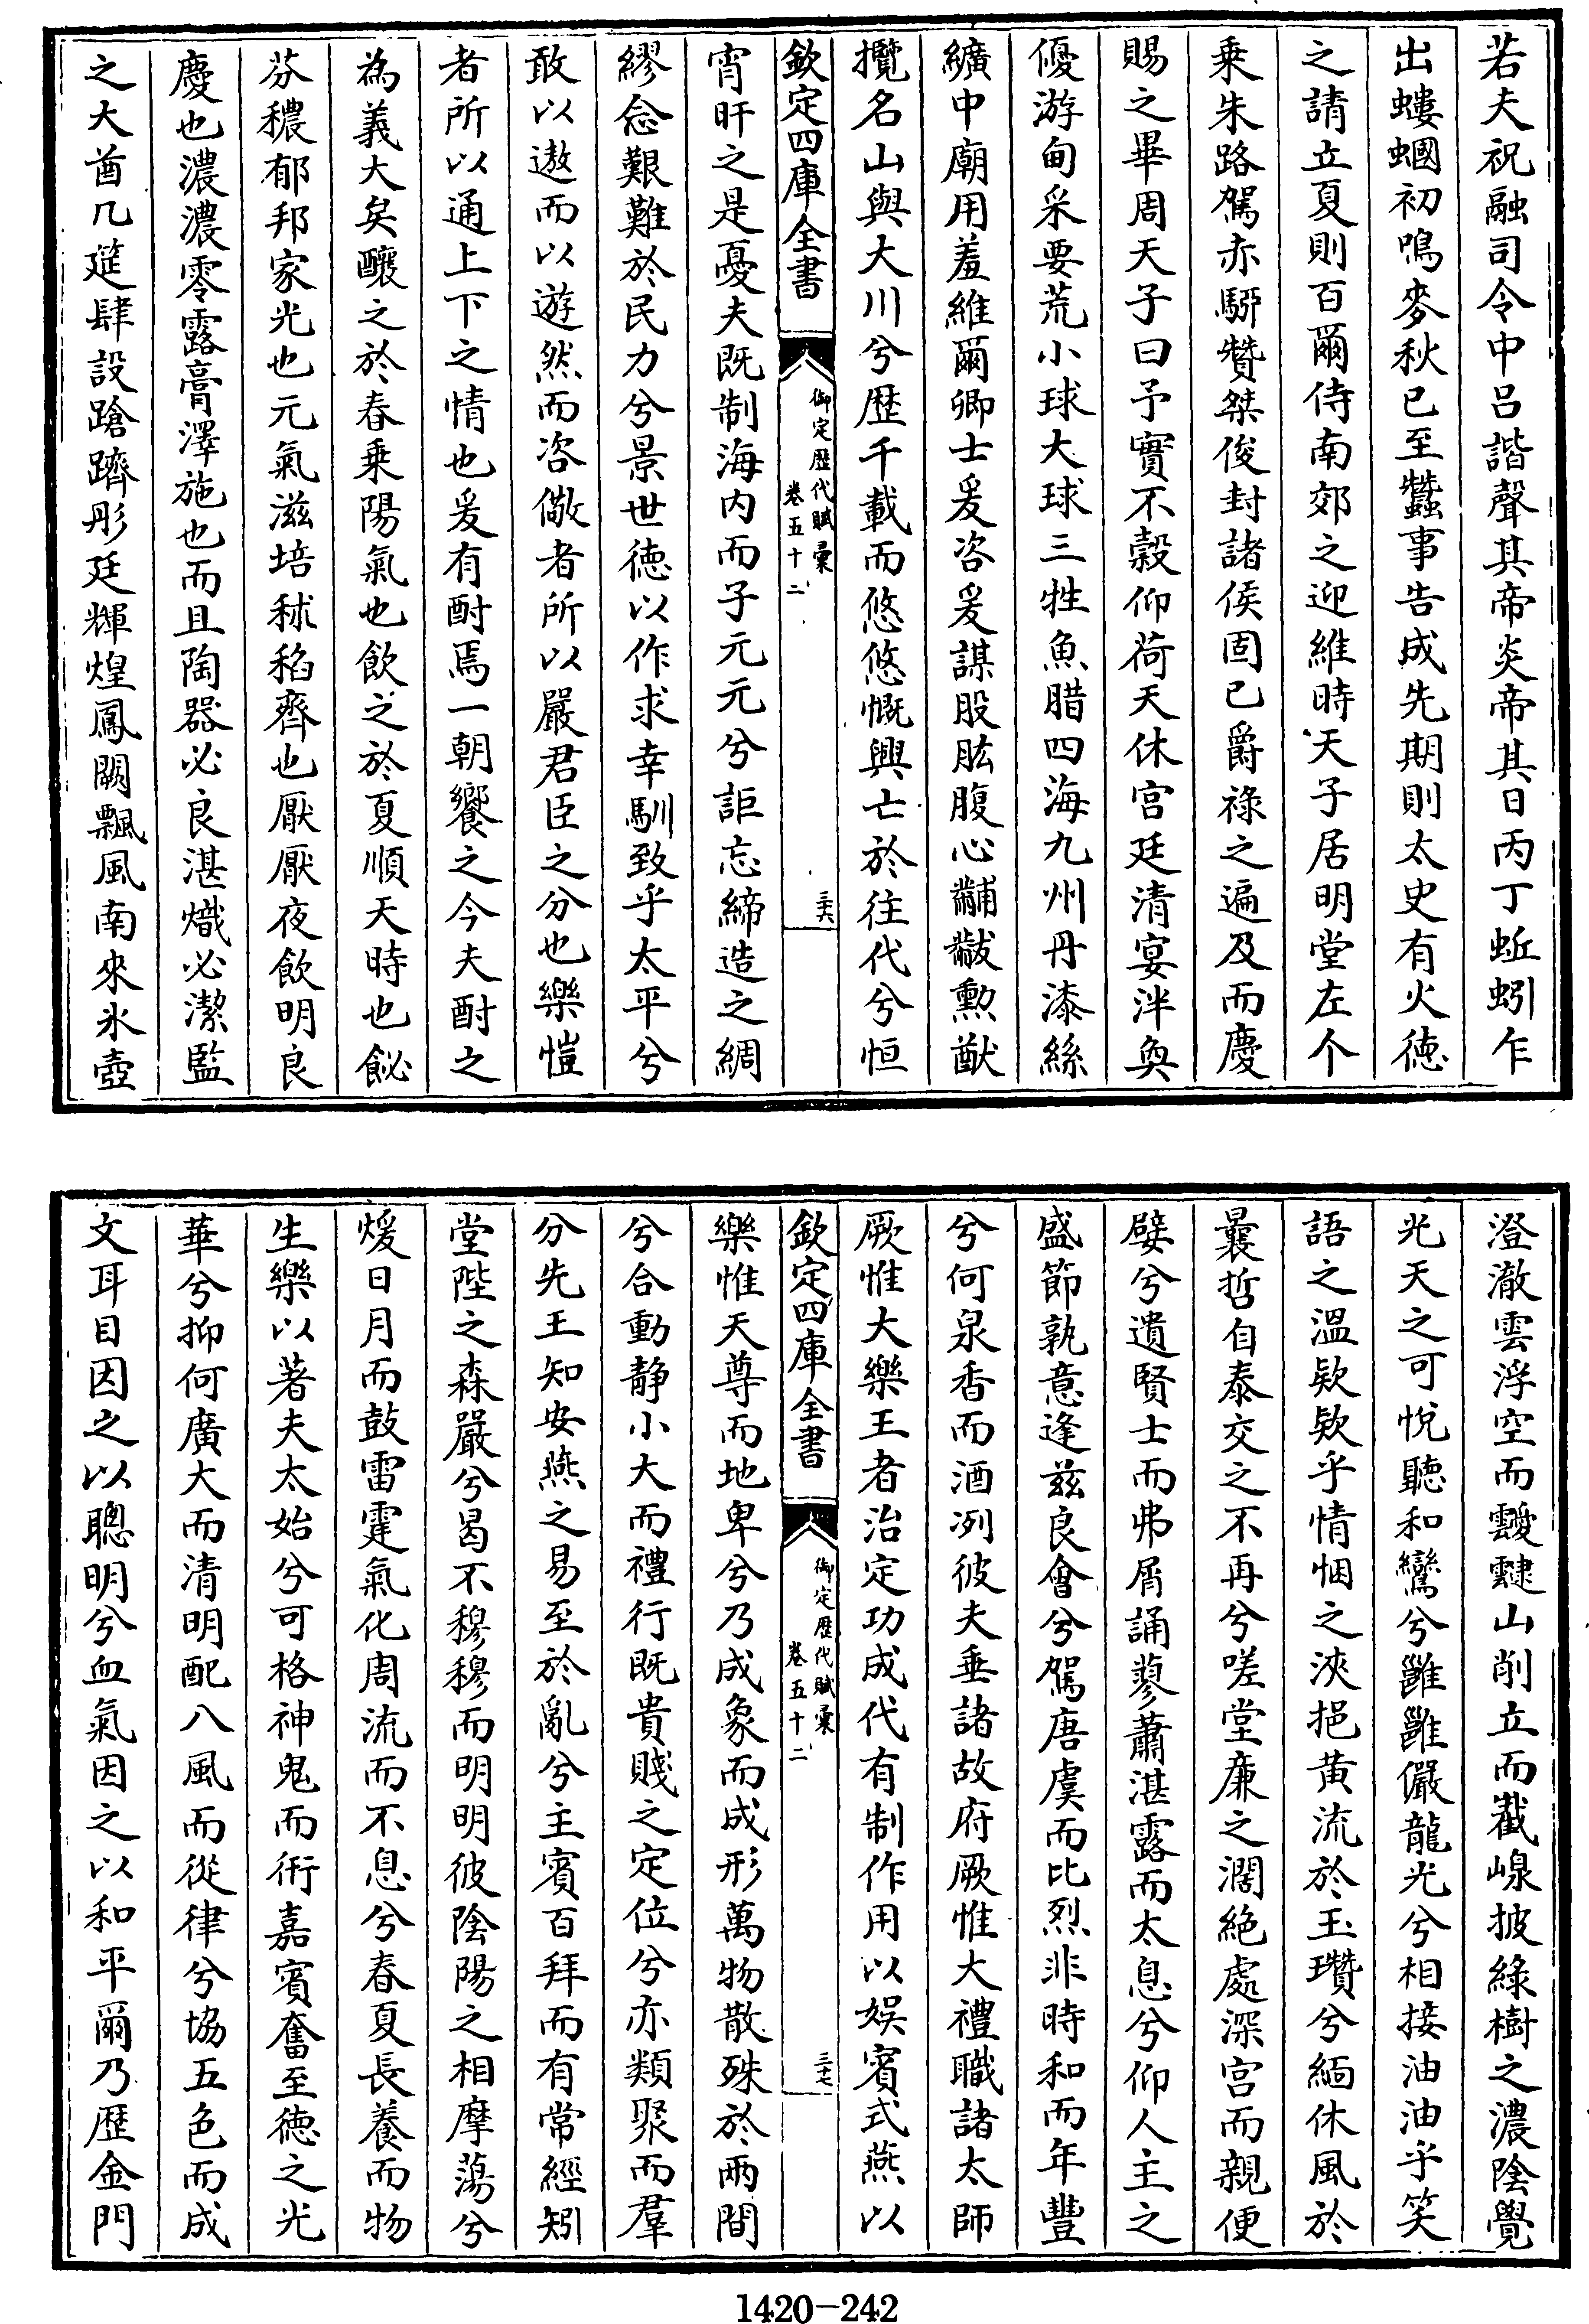 若夫祝融司令中呂諧聲其帝炎帝其日丙丁蚯蚓乍
出螻蟈初鳴麥秋已至蠶事告成先期則太史有火徳
之請立夏則百爾侍南郊之迎維時天子居明堂左个
乗朱路駕赤駵贊桀俊封諸侯固已爵祿之遍及而慶
賜之畢周天子曰予實不榖仰荷天休宫廷清宴泮奐
優游甸采要荒小球大球三牲魚腊四海九州丹漆絲
纊中廟用羞維爾卿士爰咨爰謀股肱腹心黼黻勲猷
攬名山與大川兮歴千載而悠悠慨興亡於往代兮恒
欽定四庫全書
御定歴代賦彚
卷五十二
三六
宵旰之是憂夫既制海内而子元元兮詎忘締造之綢
繆念艱難於民力兮景世徳以作求幸馴致乎太平兮
敢以遨而以遊然而咨儆者所以嚴君臣之分也樂愷
者所以通上下之情也爰有酎焉一朝饗之今夫酎之
為義大矣釀之於春乗陽氣也飲之於夏順天時也飶
芬穠郁邦家光也元氣滋培秫稻齊也厭厭夜飲明良
慶也濃濃零露膏澤施也而且陶器必良湛熾必潔監
之大酋几筵肆設蹌躋彤廷輝煌鳳闕飄風南來氷壺
澄澈雲浮空而靉靆山削立而巀嵲披綠樹之濃陰覺
光天之可悅聽和鸞兮雝雝儼龍光兮相接油油乎笑
語之溫欵欵乎情悃之浹挹黄流於玉瓚兮緬休風於
曩哲自泰交之不再兮嗟堂亷之濶絶處深宫而親便
嬖兮遺賢士而弗屑誦蓼蕭湛露而太息兮仰人主之
盛節孰意逢兹良㑹兮駕唐虞而比烈非時和而年豐
兮何泉香而酒冽彼夫垂諸故府厥惟大禮職諸太師
厥惟大樂王者治定功成代有制作用以娱賓式燕以
欽定四庫全書
御定歴代賦彚
卷五十二
三七
樂惟天尊而地卑兮乃成象而成形萬物散殊於兩間
兮合動静小大而禮行既貴賤之定位兮亦類聚而羣
分先王知安燕之易至於亂兮主賓百拜而有常經矧
堂陛之森嚴兮曷不穆穆而明明彼陰陽之相摩蕩兮
煖日月而鼓雷霆氣化周流而不息兮春夏長養而物
生樂以著夫太始兮可格神鬼而衎嘉賓奮至徳之光
華兮抑何廣大而清明配八風而從律兮協五色而成
文耳目因之以聰明兮血氣因之以和平爾乃歴金門
1420-242